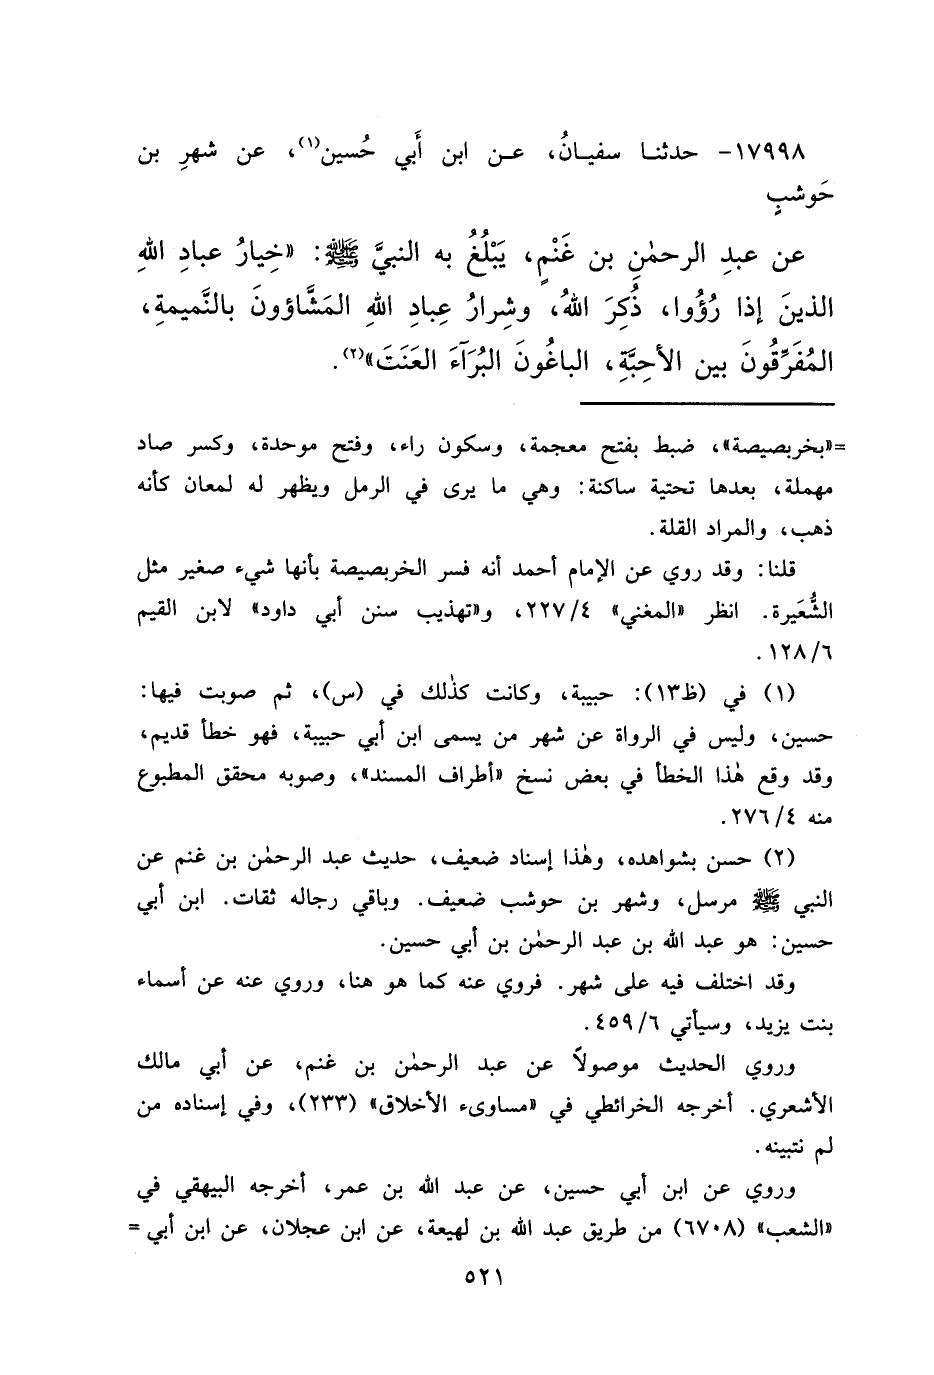 ١٧٩٩٨- حدثنا سفيانُ، عن ابن أَبي حُسين(١)، عن شهرِ بن
حَوشبٍ
عن عبدِ الرحمٰنِ بن غَنْمٍ، يَبْلُغُ به النبيَّ ﷺ: «خِيارُ عبادِ اللهِ
الذينَ إذا رُؤُوا، ذُكِرَ اللهُ، وشِرارُ عِبادِ اللهِ المَشَّاؤونَ بالنَّميمةِ،
المُفَرِّقُونَ بين الأحِبَّةِ، الباغُونَ البُرَآءَ العَنَتَ»(٢).
=«بخربصيصة»، ضبط بفتح معجمة، وسكون راء، وفتح موحدة، وكسر صاد
مهملة، بعدها تحتية ساكنة: وهي ما يرى في الرمل ويظهر له لمعان كأنه
ذهب، والمراد القلة.
قلنا: وقد روي عن الإمام أحمد أنه فسر الخربصيصة بأنها شيء صغير مثل
الشُّعَيرة. انظر «المغني» ٢٢٧/٤، و«تهذيب سنن أبي داود» لابن القيم
١٢٨/٦.
(١) في (ظ١٣): حبيبة، وكانت كذٰلك في (س)، ثم صوبت فيها:
حسين، وليس في الرواة عن شهر من يسمى ابن أبي حبيبة، فهو خطأ قديم،
وقد وقع هٰذا الخطأ في بعض نسخ «أطراف المسند»، وصوبه محقق المطبوع
منه ٢٧٦/٤.
(٢) حسن بشواهده، وهٰذا إسناد ضعيف، حديث عبد الرحمٰن بن غنم عن
النبي ﷺ مرسل، وشهر بن حوشب ضعيف. وباقي رجاله ثقات. ابن أبي
حسين: هو عبد الله بن عبد الرحمٰن بن أبي حسين.
وقد اختلف فيه على شهر. فروي عنه كما هو هنا، وروي عنه عن أسماء
بنت يزيد، وسيأتي ٤٥٩/٦.
وروي الحديث موصولاً عن عبد الرحمٰن بن غنم، عن أبي مالك
الأشعري. أخرجه الخرائطي في «مساوىء الأخلاق» (٢٣٣)، وفي إسناده من
لم نتبينه.
وروي عن ابن أبي حسين، عن عبد الله بن عمر، أخرجه البيهقي في
«الشعب» (٦٧٠٨) من طريق عبد الله بن لهيعة، عن ابن عجلان، عن ابن أبي =
٥٢١